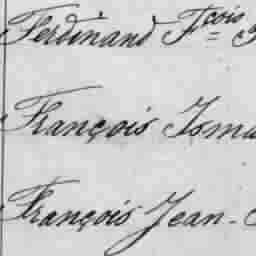 Ferdinand Fçois
François Isma
François Jean-